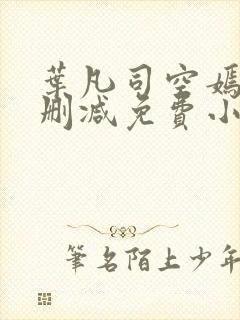 葉凡司空嫣
刪減免費小
筆名陌上少年